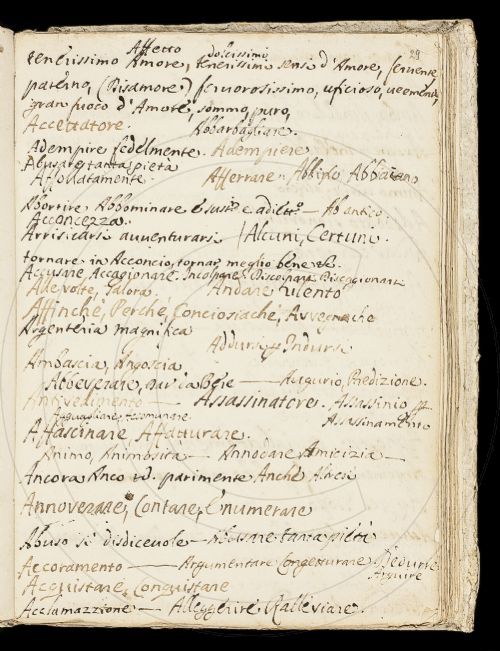 29
Affetto dolcissimi
tenerissimo Amore, tenerissimi sensi d'Amore, fervente
paterno, (Risamore) fervorosissimo, uficioso, veemente,
gran fuoco d'Amore, sommo, puro,
Accettatore. Abbarbagliare.
Adempire fedelmente. Adempiere
Abusare tanta pietà
Affollatamente Afferrare
Abortire. Abbominare Ab antico
Acconcezza.
Arrisicarsi avventurarsi Alcuni, Certuni.
tornare in Acconcio, tornar meglio bene
Accusare, Accagionare. Incolpare
Alle volte, talora. Andare ulento
Affinchè, Perchè, Conciosiachè, Avvegnache
Argenteria magnifica
Addursi p Indursi
Ambascia, Angoscia
Abbeverare, Augurio, Predizione.
Antivedimento Assassinatore. Assassinio p
Agguagliare Assassinamento
Affascinare, Affatturare.
Animo, Animosità Annodare Amicizia
Ancora Anco parimente Anche Altresì
Annoverare, Contare, Enumerare
Abuso sì disdicevole Abusare tanta pietà
Accoramento Argumentare Congetturare Dedurre
Arguire
Acquistare, Conquistare
Acclamazzione Alleggerire Ralleviare.